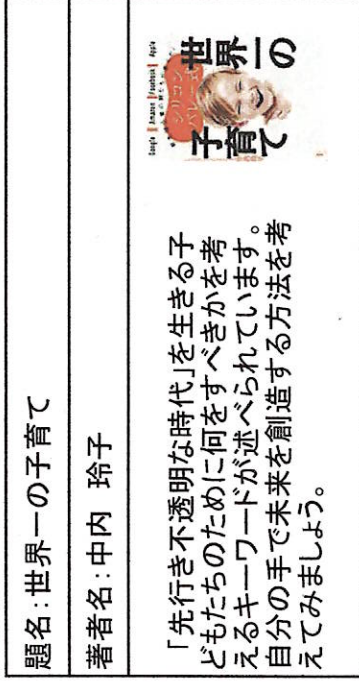 題名:世界一の子育て
著者名:中内 玲子
「先行き不透明な時代」を生きる子
どもたちのために何をすべきかを考
えるキーワードが述べられています。
自分の手で未来を創造する方法を考
えてみましょう。
Google Amazon Facebook Apple
シリコン
バレー式
世界一の
子育て